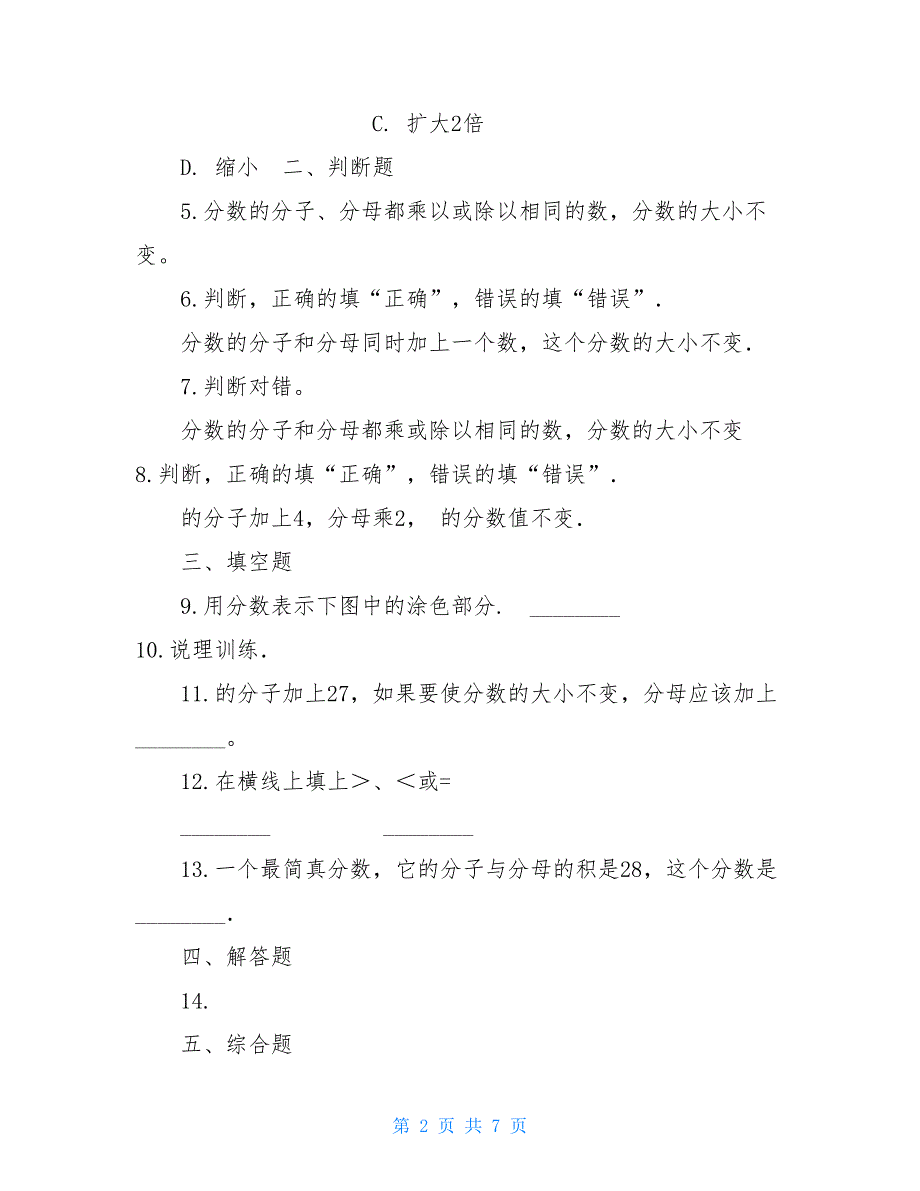 C. 扩大2倍
D. 缩小 二、判断题
5.分数的分子、分母都乘以或除以相同的数，分数的大小不
变。
6.判断，正确的填“正确”，错误的填“错误”．
分数的分子和分母同时加上一个数，这个分数的大小不变．
7.判断对错。
分数的分子和分母都乘或除以相同的数，分数的大小不变
8.判断，正确的填“正确”，错误的填“错误”．
的分子加上4，分母乘2， 的分数值不变．
三、填空题
9.用分数表示下图中的涂色部分． ________
10.说理训练．
11.的分子加上27，如果要使分数的大小不变，分母应该加上
________。
12.在横线上填上＞、＜或=
________ ________
13.一个最简真分数，它的分子与分母的积是28，这个分数是
________．
四、解答题
14.
五、综合题
第 2 页 共 7 页